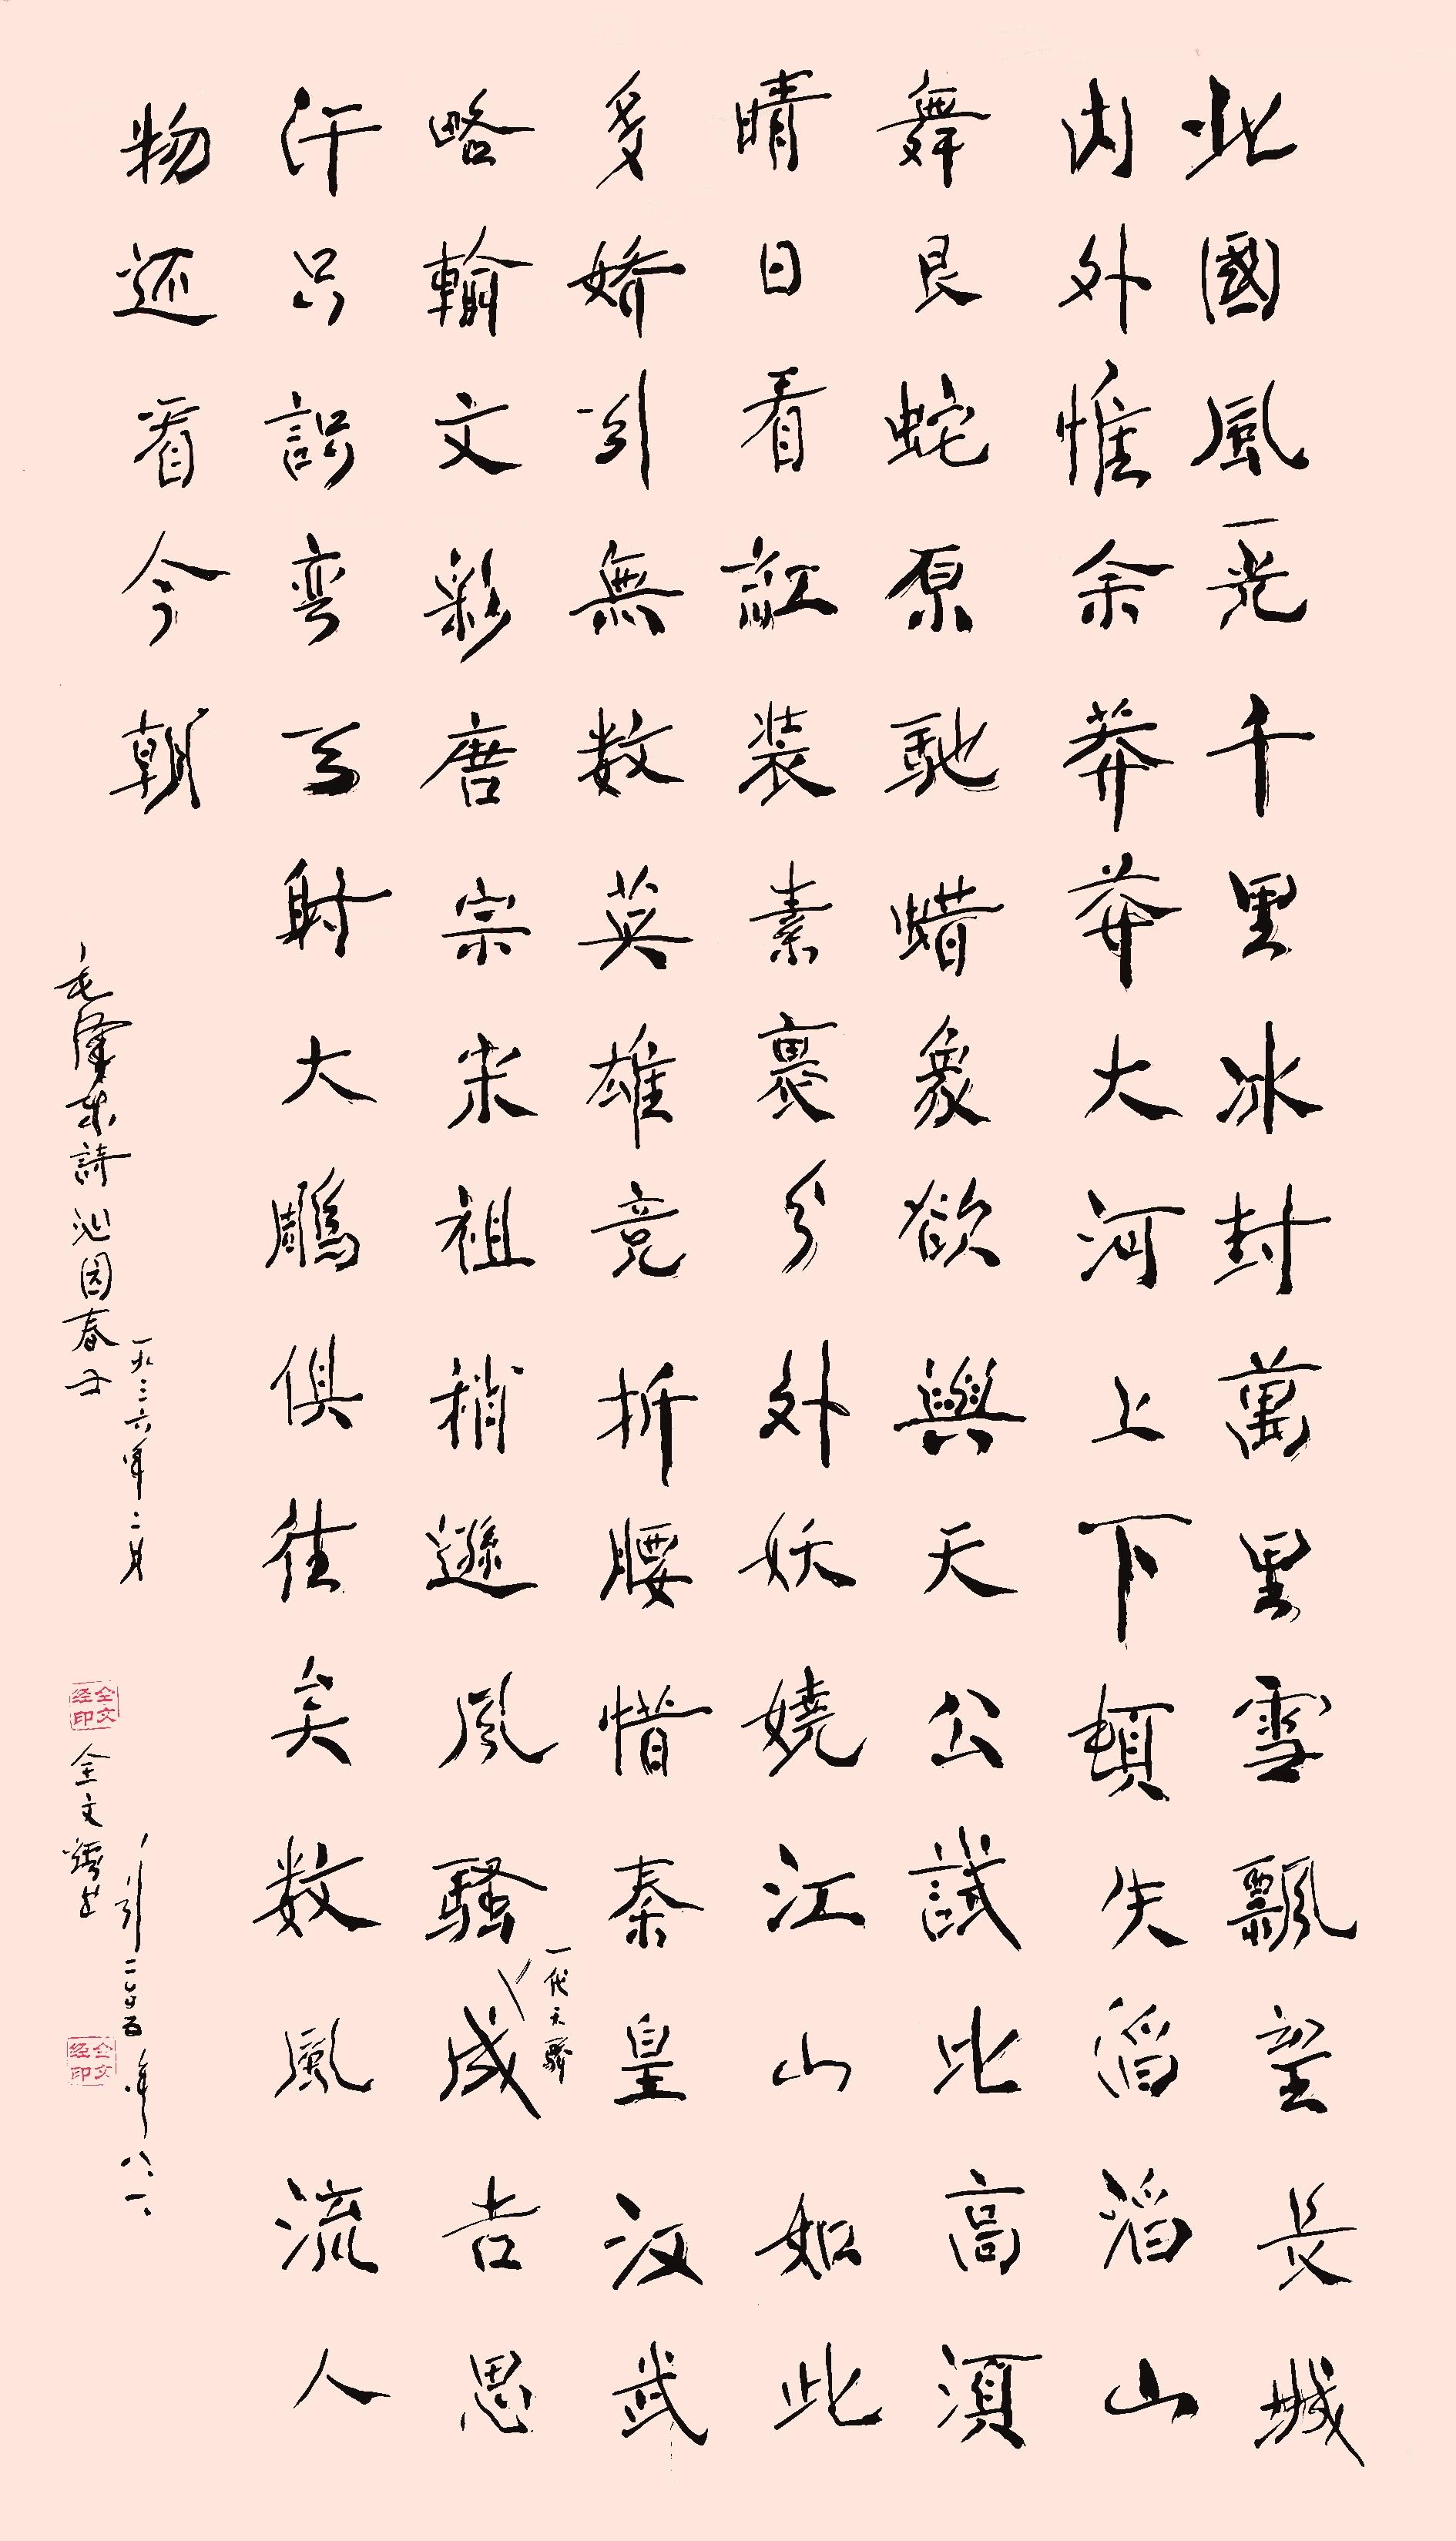 北國風光千里冰封萬里雪飄望長城
内外惟余莽莽大河上下頓失滔滔山
舞艮蛇原馳蜡象欲與天公試比高須
晴日看訌装素裹分外妖嬈江山如此
多娇引無数英雄竞折腰惜秦皇汉武
略輸文彩唐宗宋祖稍遜風騷成吉思
一代天驕
汗只識弯弓射大鵰俱往矣数風流人
物还看今朝
毛澤東詩沁园春雪
一九三六年二月
仝文经印
仝文經书
二〇〇五年八.一.
仝文经印